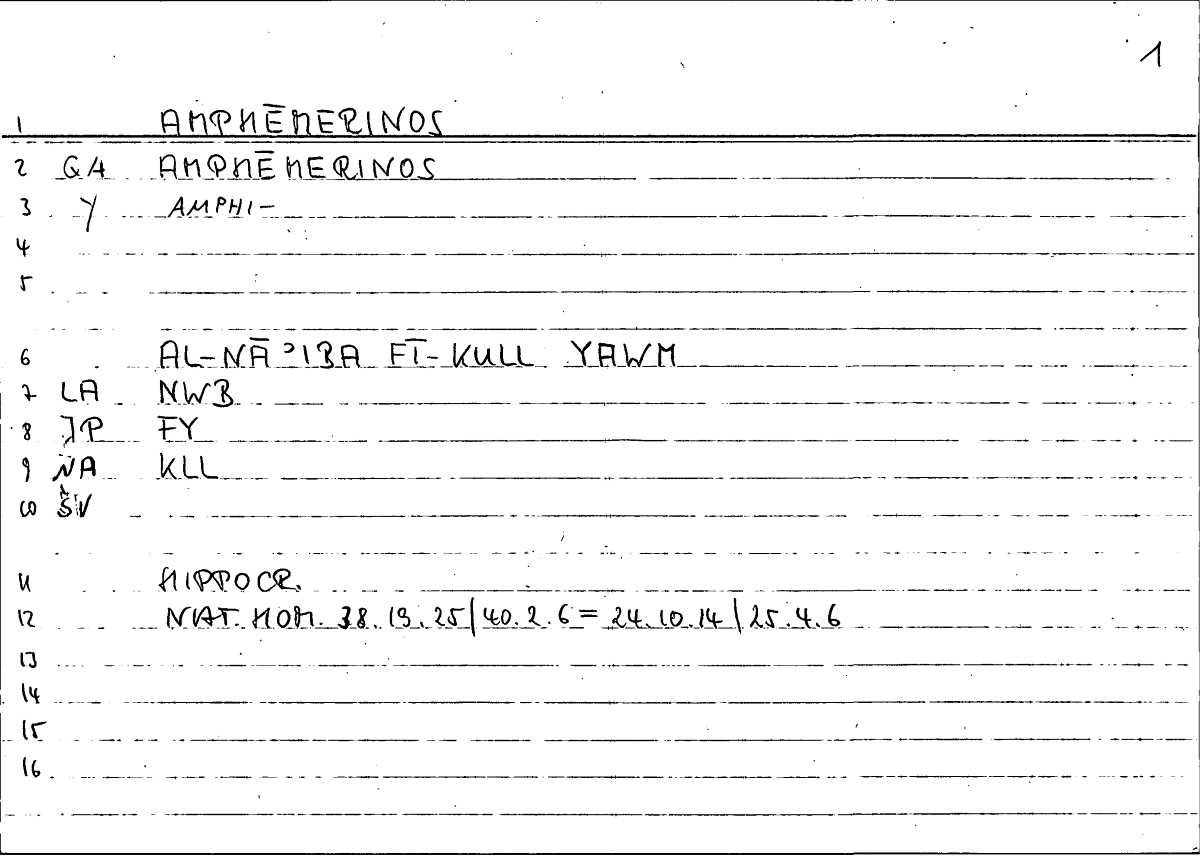 1
1 AMPHĒMERINOS
2 GA AMPHĒMERINOS
3 Y AMPHI-
4
5
6 AL-NĀʾIBA FĪ-KULL YAWM
7 LA NWB
8 JP FY
9 NA KLL
10 ŠV
11 HIPPOCR.
12 NAT. HOM. 38.19.25|40.2.6=24.10.14|25.4.6
13
14
15
16